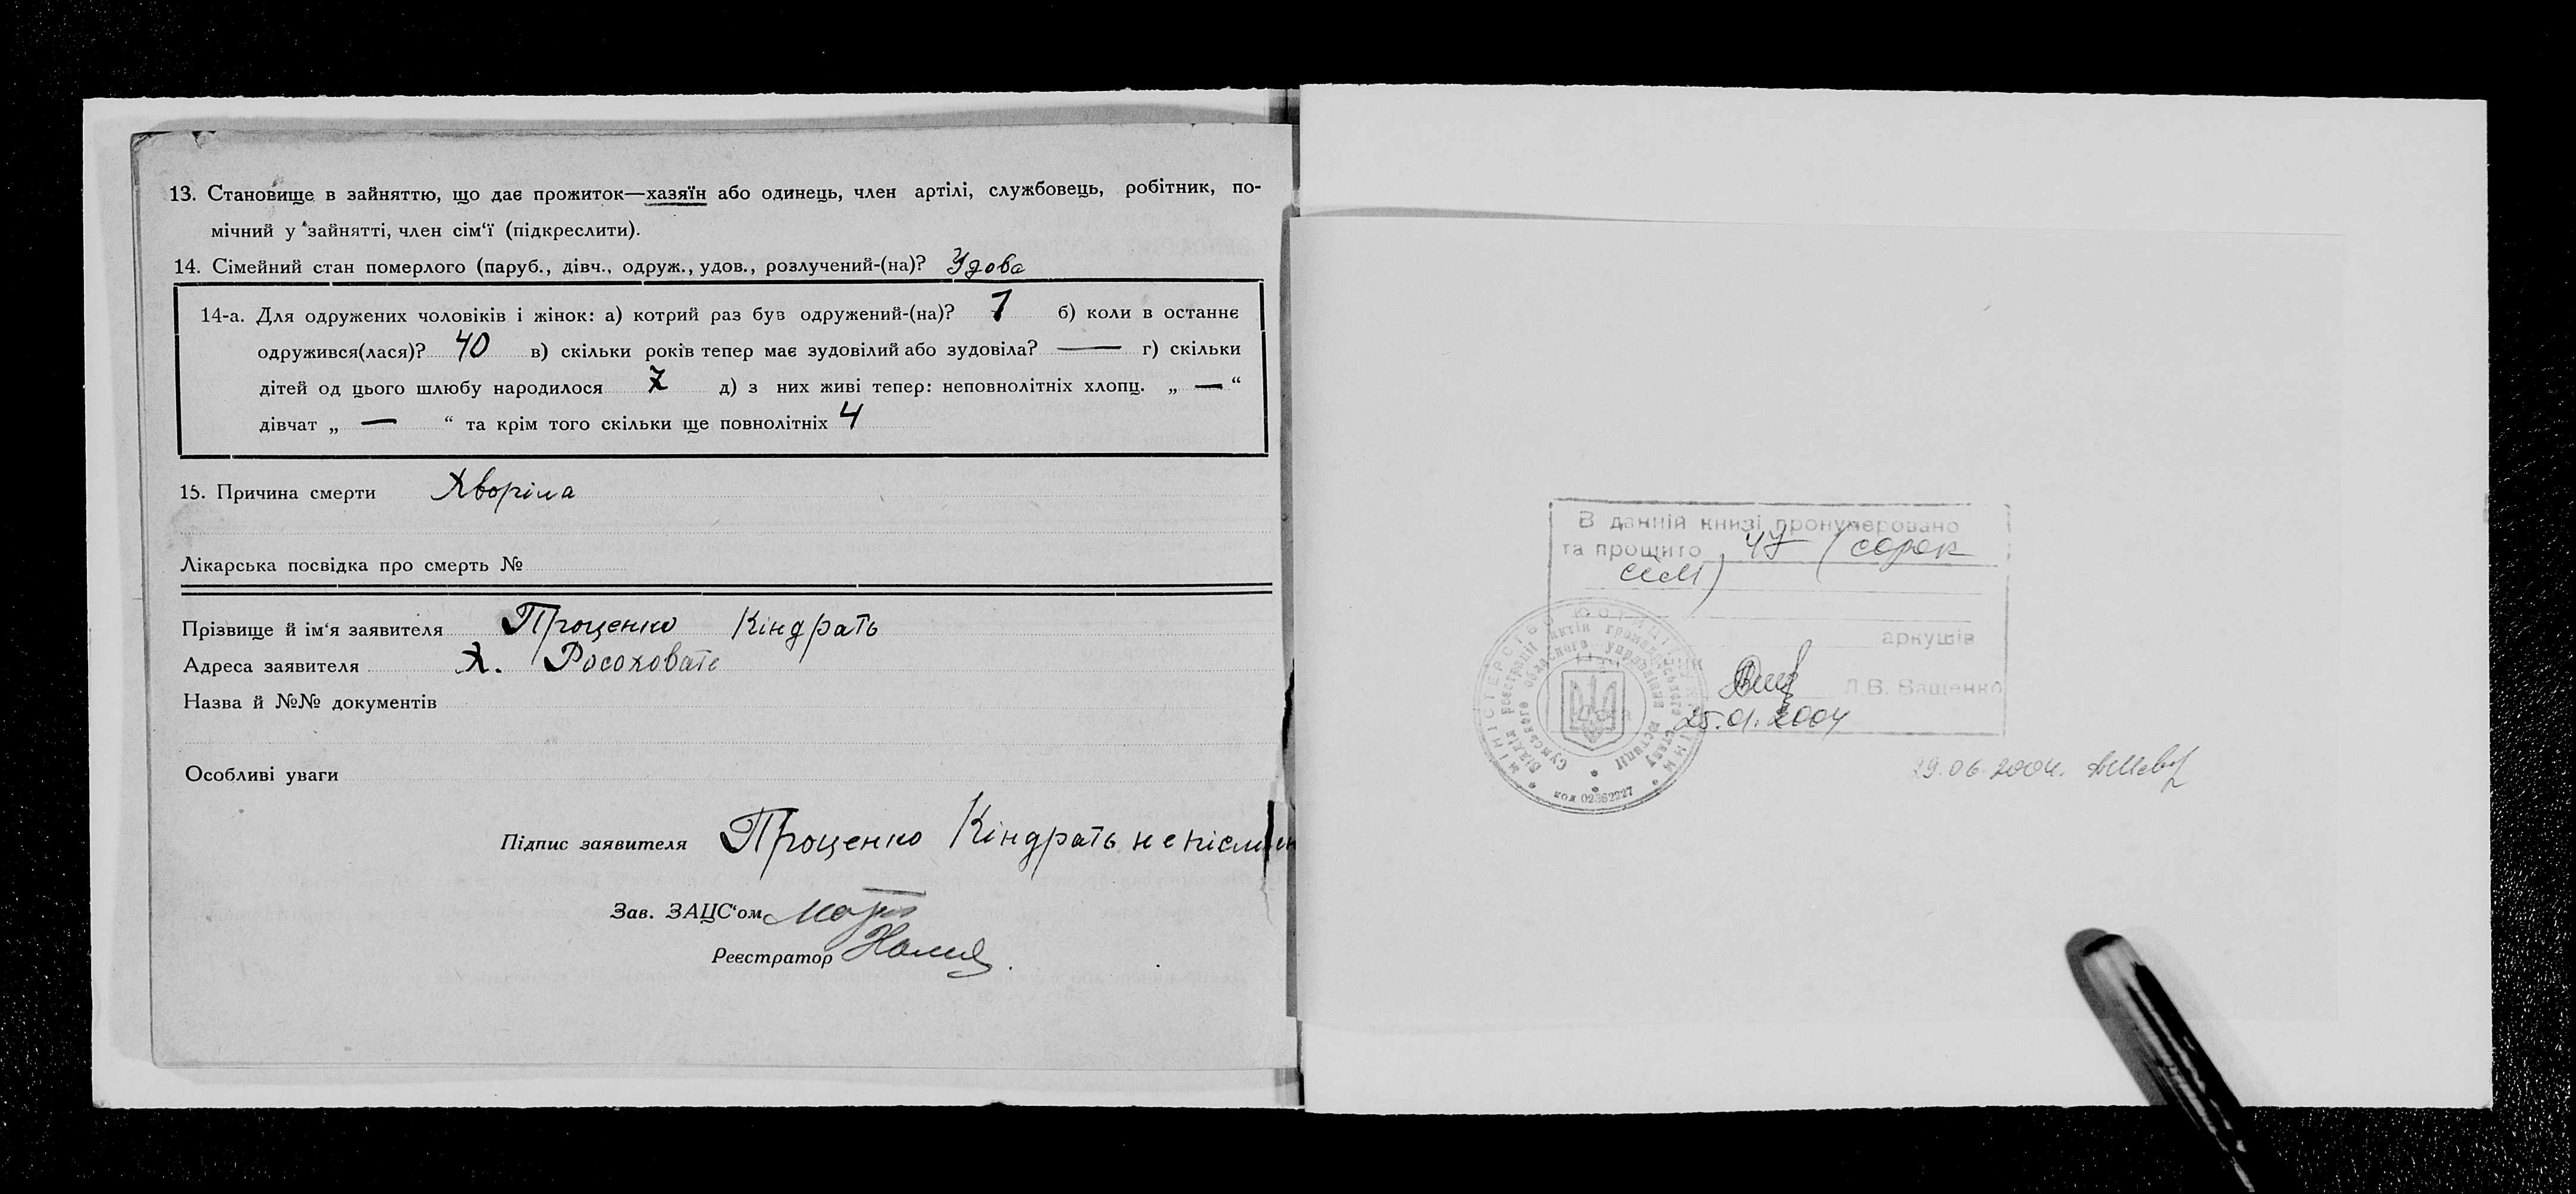 13. Становище в зайняттю, що дає прожиток—хазяїн або одинець, член артілі, службовець, робітник, по-
мічний у зайнятті, член сім‘ї (підкреслити).
14. Сімейний стан померлого (паруб., дівч., одруж., удов., розлучений-(на)? Удова
14-а. Для одружених чоловіків і жінок: а) котрий раз був одружений-(на)? 1 б) коли в останнє
одружився(лася)? 40 в) скільки років тепер має зудовілий або зудовіла? — г) скільки
дітей од цього шлюбу народилося 7 д) з них живі тепер: неповнолітніх хлопц. „ — “
дівчат „ — “ та крім того скільки ще повнолітніх 4
15. Причина смерти Хворіла
Лікарська посвідка про смерть №
Прізвище й ім‘я заявителя Проценко Кіндрать
Адреса заявителя Х. Росоховате
Назва й №№ документів
Особливі уваги
Підпис заявителя Проценко Кіндрать
Зав. ЗАЦС‘ом
Реєстратор
В данній книзі пронумеровано
та прошито 47 (сорок
сім)
аркушів
Л.В. Ващенко
25.01.2004
МІНІСТЕРСТВО ЮСТИЦІЇ УКРАЇНИ
Відділ реєстрації актів громадянського стану
Сумського обласного управління юстиції
код 02362227
29.06.2004.